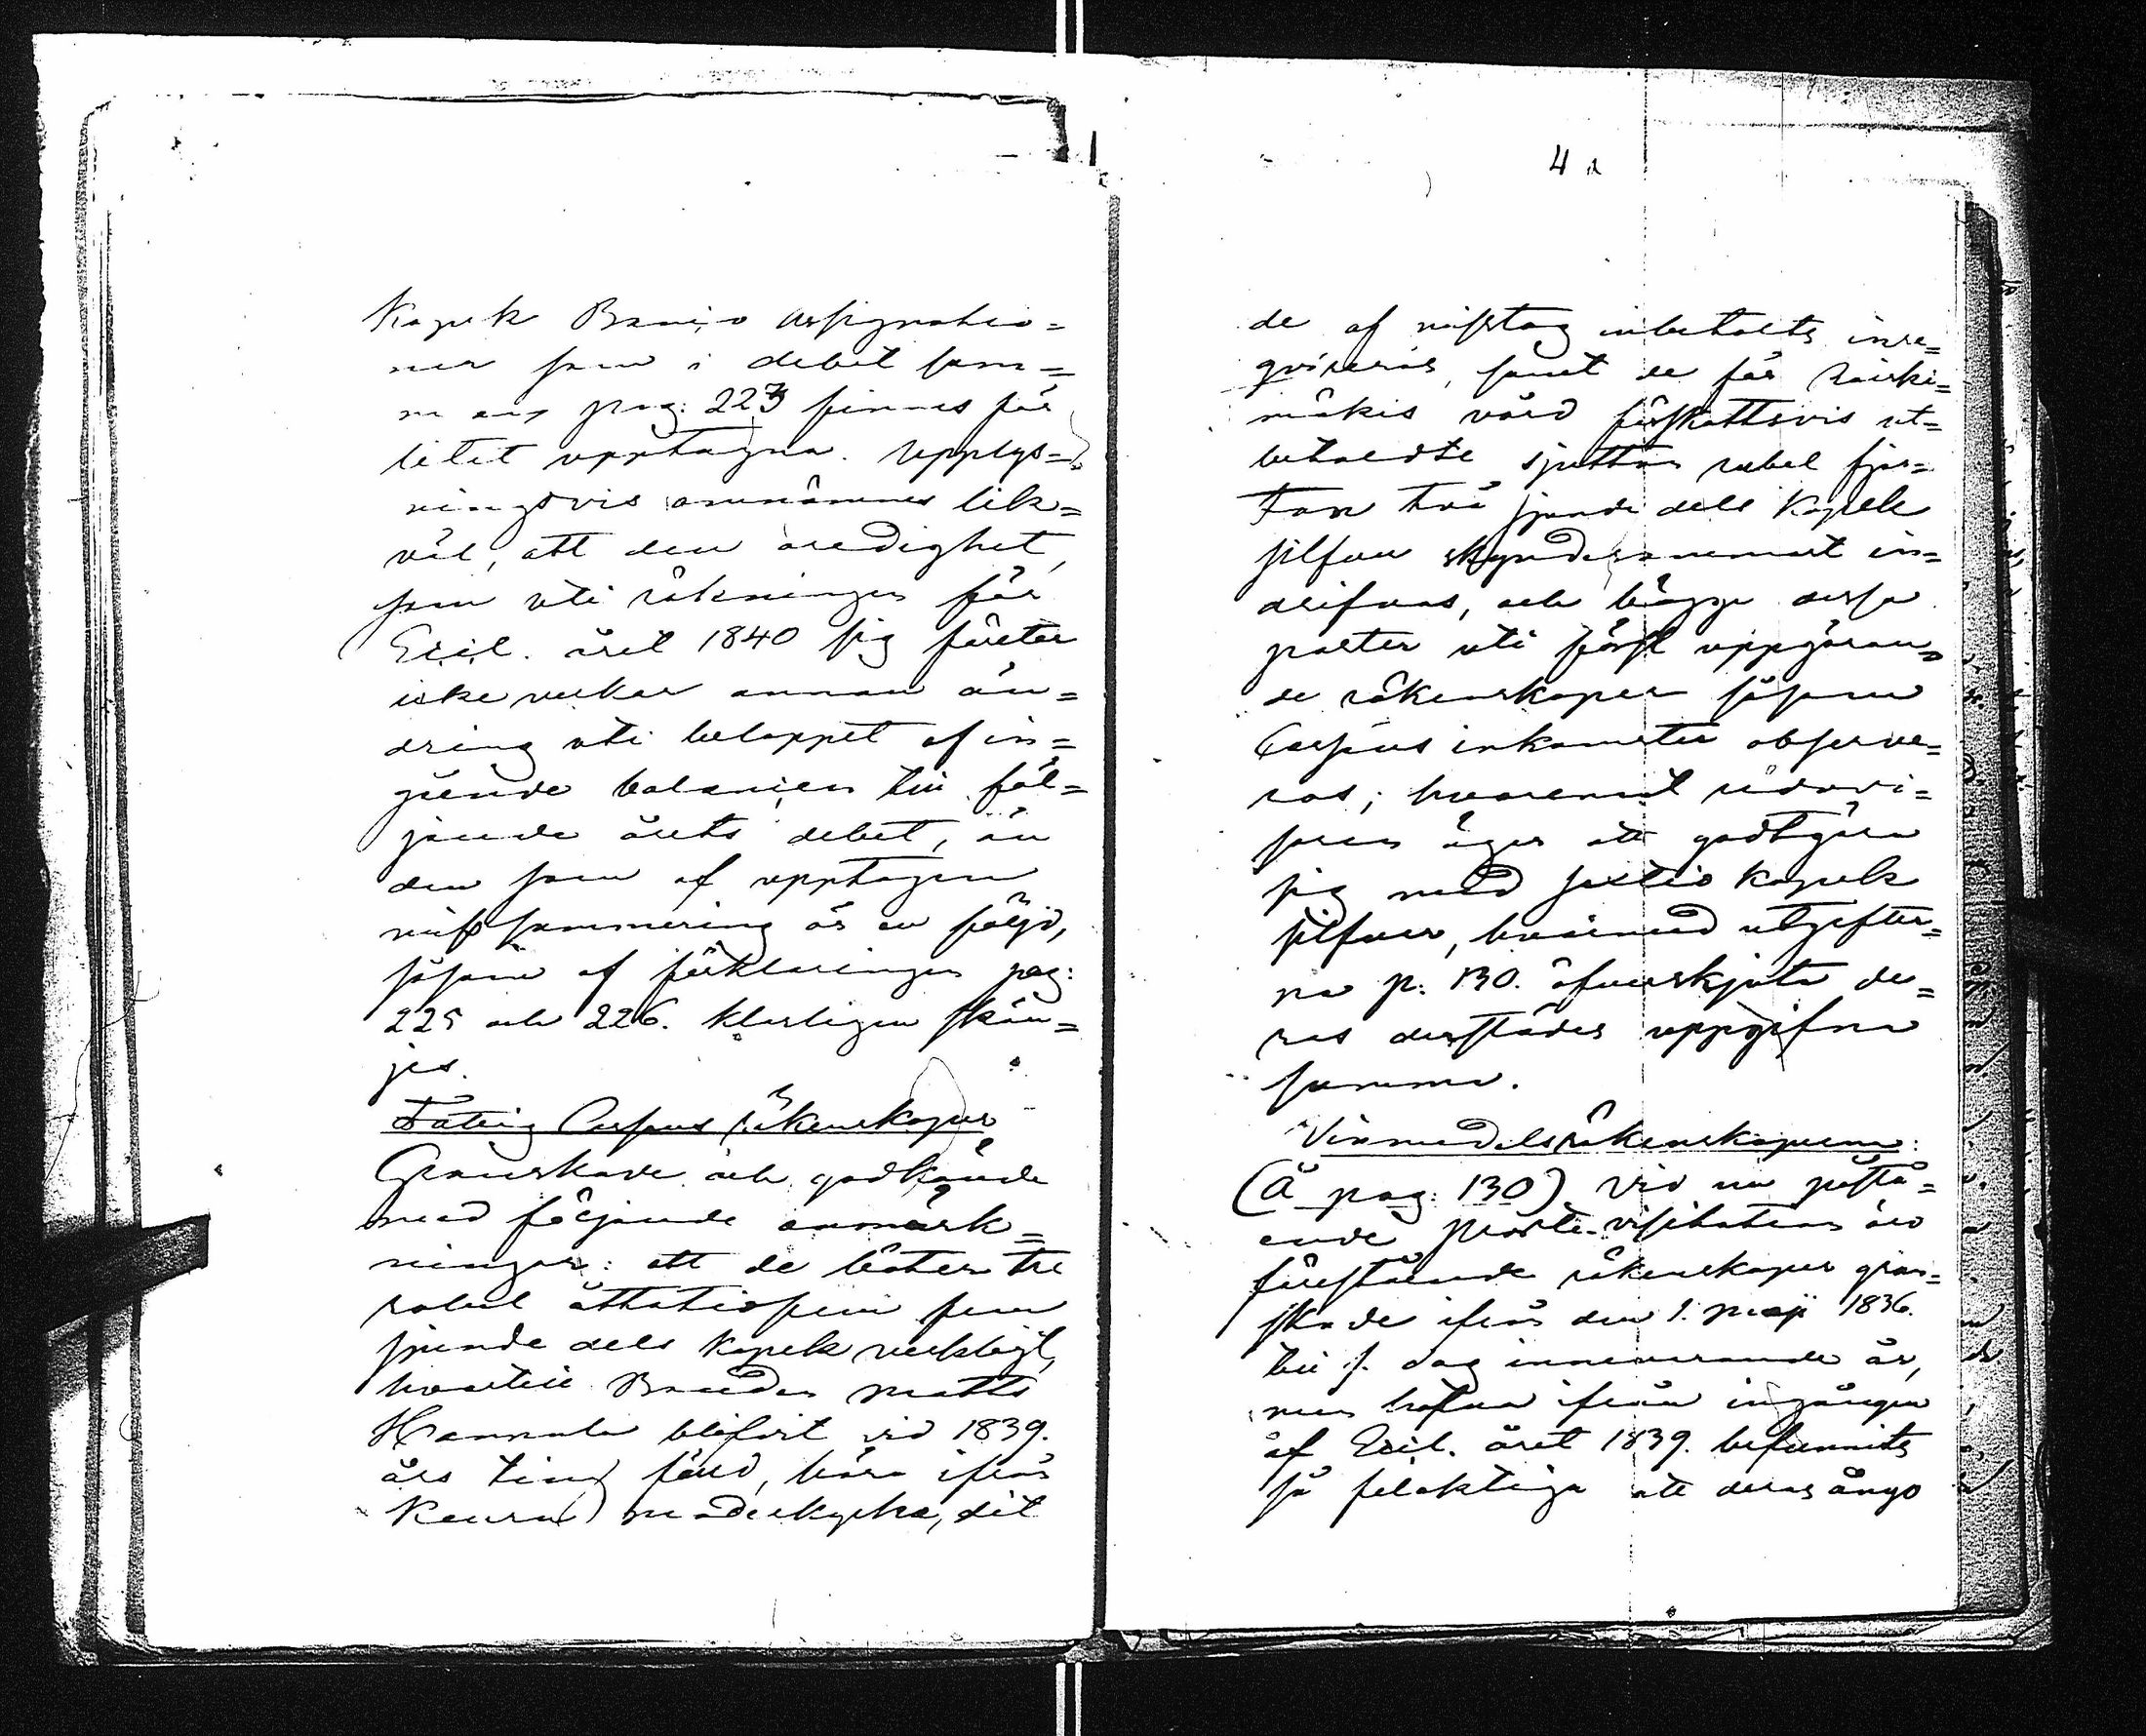 Kopek Banco assignatio=
ner som i debet sum=
man pag: 223 finnes för
litet upptagna. Upplys=
ningsvis omnämnes lik=
väl, att den oredighet,
som uti räkningen för
Eccl. året 1840 sig företer
icke verkar annan än=
dring uti beloppet af in=
gående balancen till föl=
jande årets debet, än
den som af upptagen
missummering är en följd,
såsom af förklaringen pag:
225 och 226. klarligen skön=
jes.
Fattig Cassans räkenskaper
Granskade och godkände
med följande anmärk=
ningar: att de böter tre
rubel åttatiofem fem
sjunde dels kopek verkligt,
hvartill Bonden Matts
Hannula blifvit vid 1839.
års ting fälld, böra ifrån
Keuru moderkyrka, dit
4
de af misstag inbetalts, inre=
qvireras, samt de för
vård förskottsvis ut=
betaldte sjutton rubel fjor=
ton två sjunde dels kopek
silfver skyndesammast in=
drifvas, och bägge dessa
poster uti först uppgöran=
de räkenskaper såsom
Cassans inkomster observe=
ras; hvaremot redovi=
saren äger att godtgöra
sig med sextio kopek
silfver, hvarmed utgifter=
na p: 130. öfverskjuta de=
ras derstädes uppgifna
summa.
Vinmedelsräkenskaperna:
(Å pag: 130) Vid nu påstå=
ende Prosts-visitation äro
förestående räkenskaper gran=
skade ifrån den 1. Maji 1836.
till s. dag innevarande år,
men hafva ifrån ingången
af Eccl. året 1839. befunnits
så felaktiga att deras ånyo